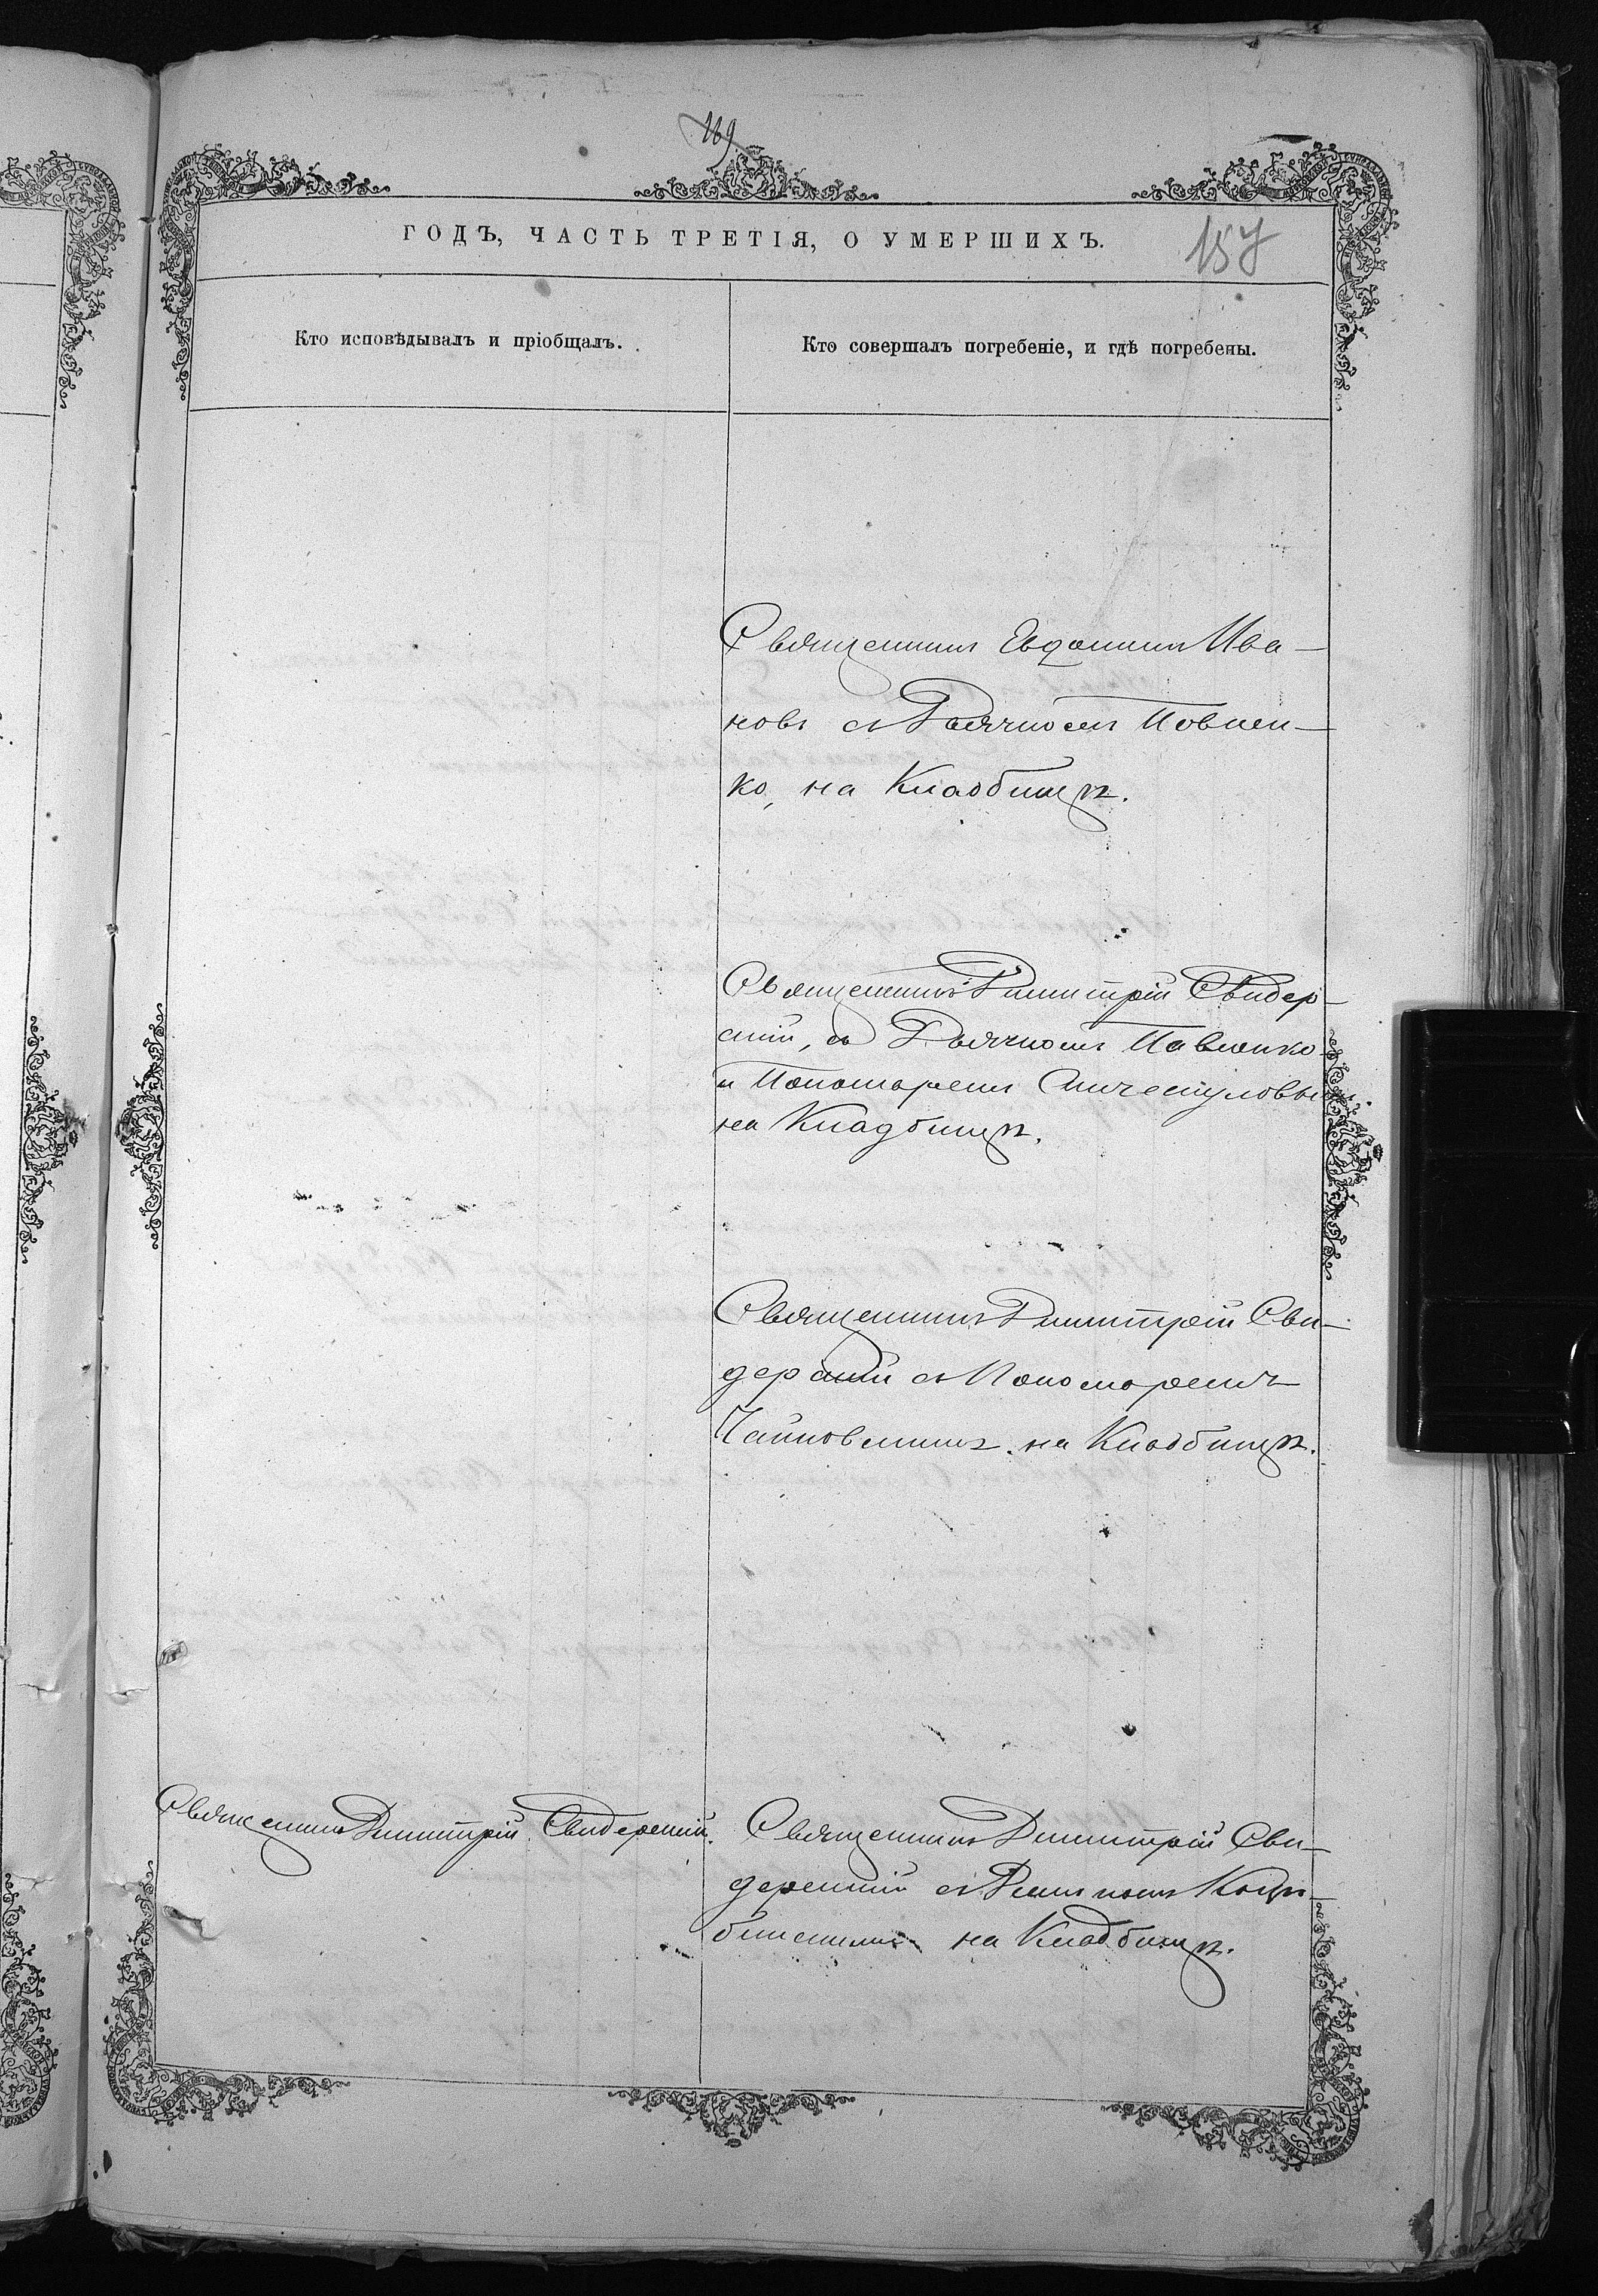 169
157
ГОДЪ, ЧАСТЬ ТРЕТІЯ, О УМЕРШИХЪ.
Кто исповѣдывалъ и пріобщалъ.
Кто совершалъ погребеніе, и гдѣ погребены.
Священникъ Евдокимъ Ива-
новъ съ Дьячкомъ Павлен-
ко, на Кладбищѣ.
Священникъ Димитрій Свидер-
скій, съ Дьячкомъ Павленко
и Пономаремъ
на Кладбищѣ.
Священникъ Димитрій Сви-
дерскій съ Пономаремъ
Чайковскимъ. на Кладбищѣ.
Священникъ Димитрій Свидерскій.
Священникъ Димитрій Сви-
дерскій съ
на Кладбищѣ.